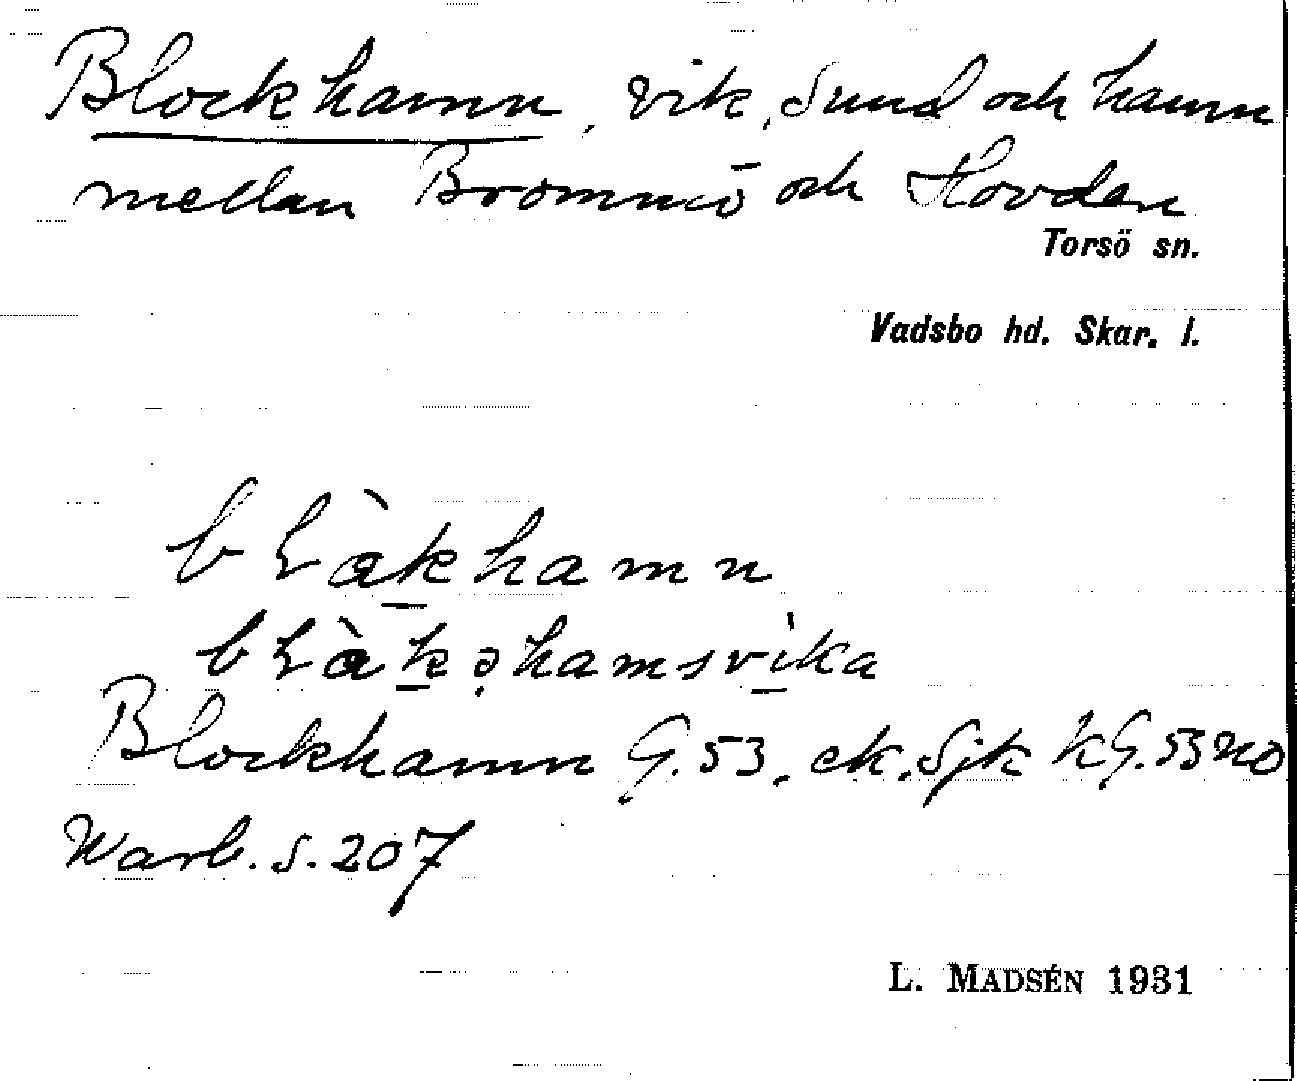 Blockhamn, vik, sund och hamn
mellan Brommö och Hovden
Torsö sn.
Vadsbo hd. Skar. l.
bɫàkhamn
bɫàkəhamsvika
Blockhamn G. 53, ek, Sjk kG. 53 NO
Warb. s. 207
L. MADSÉN 1931